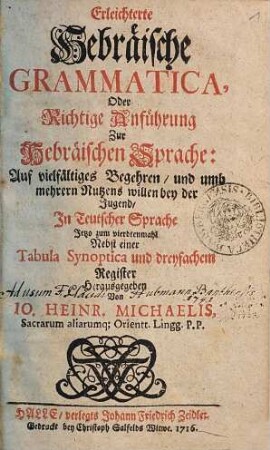 1
Erleichterte
Hebräische
GRAMMATICA,
Oder
Richtige Anführung
Zur
Hebräischen Sprache:
Auf vielfältiges Begehren / und umb
mehrern Nutzens willen bey der
Jugend /
In Teutscher Sprache
Jetzo zum vierdtenmahl
Nebst einer
Tabula Synoptica und dreyfachem
Register
Herausgegeben
Ad usum
Von
IO. HEINR. MICHAELIS,
Sacrarum aliarumq; Orientt. Lingg. P.P.
HALLE / verlegts Johann Friedrich Zeidler.
Gedruckt bey Christoph Salfelds Witwe. 1716.